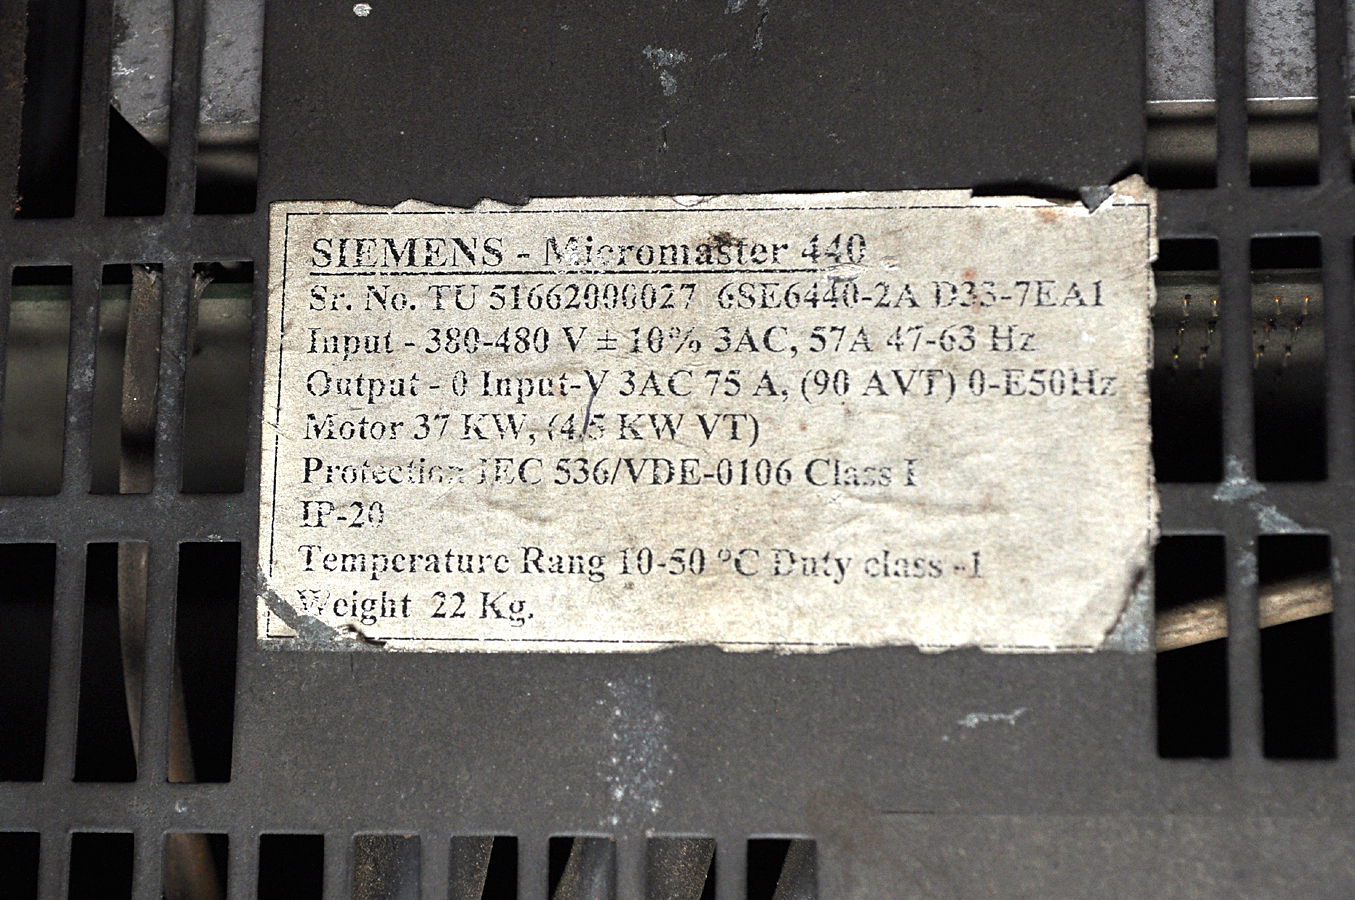 SIEMENS - Micromaster 440
Sr. No. TU 51662000027 6SE6440-2A D33-7EA1
Input - 380-480 V ± 10% 3AC, 57A 47-63 Hz
Output - 0 Input-V 3AC 75 A, (90 AVT) 0-E50Hz
Motor 37 KW, (45 KW VT)
Protection IEC 536/VDE-0106 Class I
IP-20
Temperature Rang 10-50 °C Duty class -1
Weight 22 Kg.